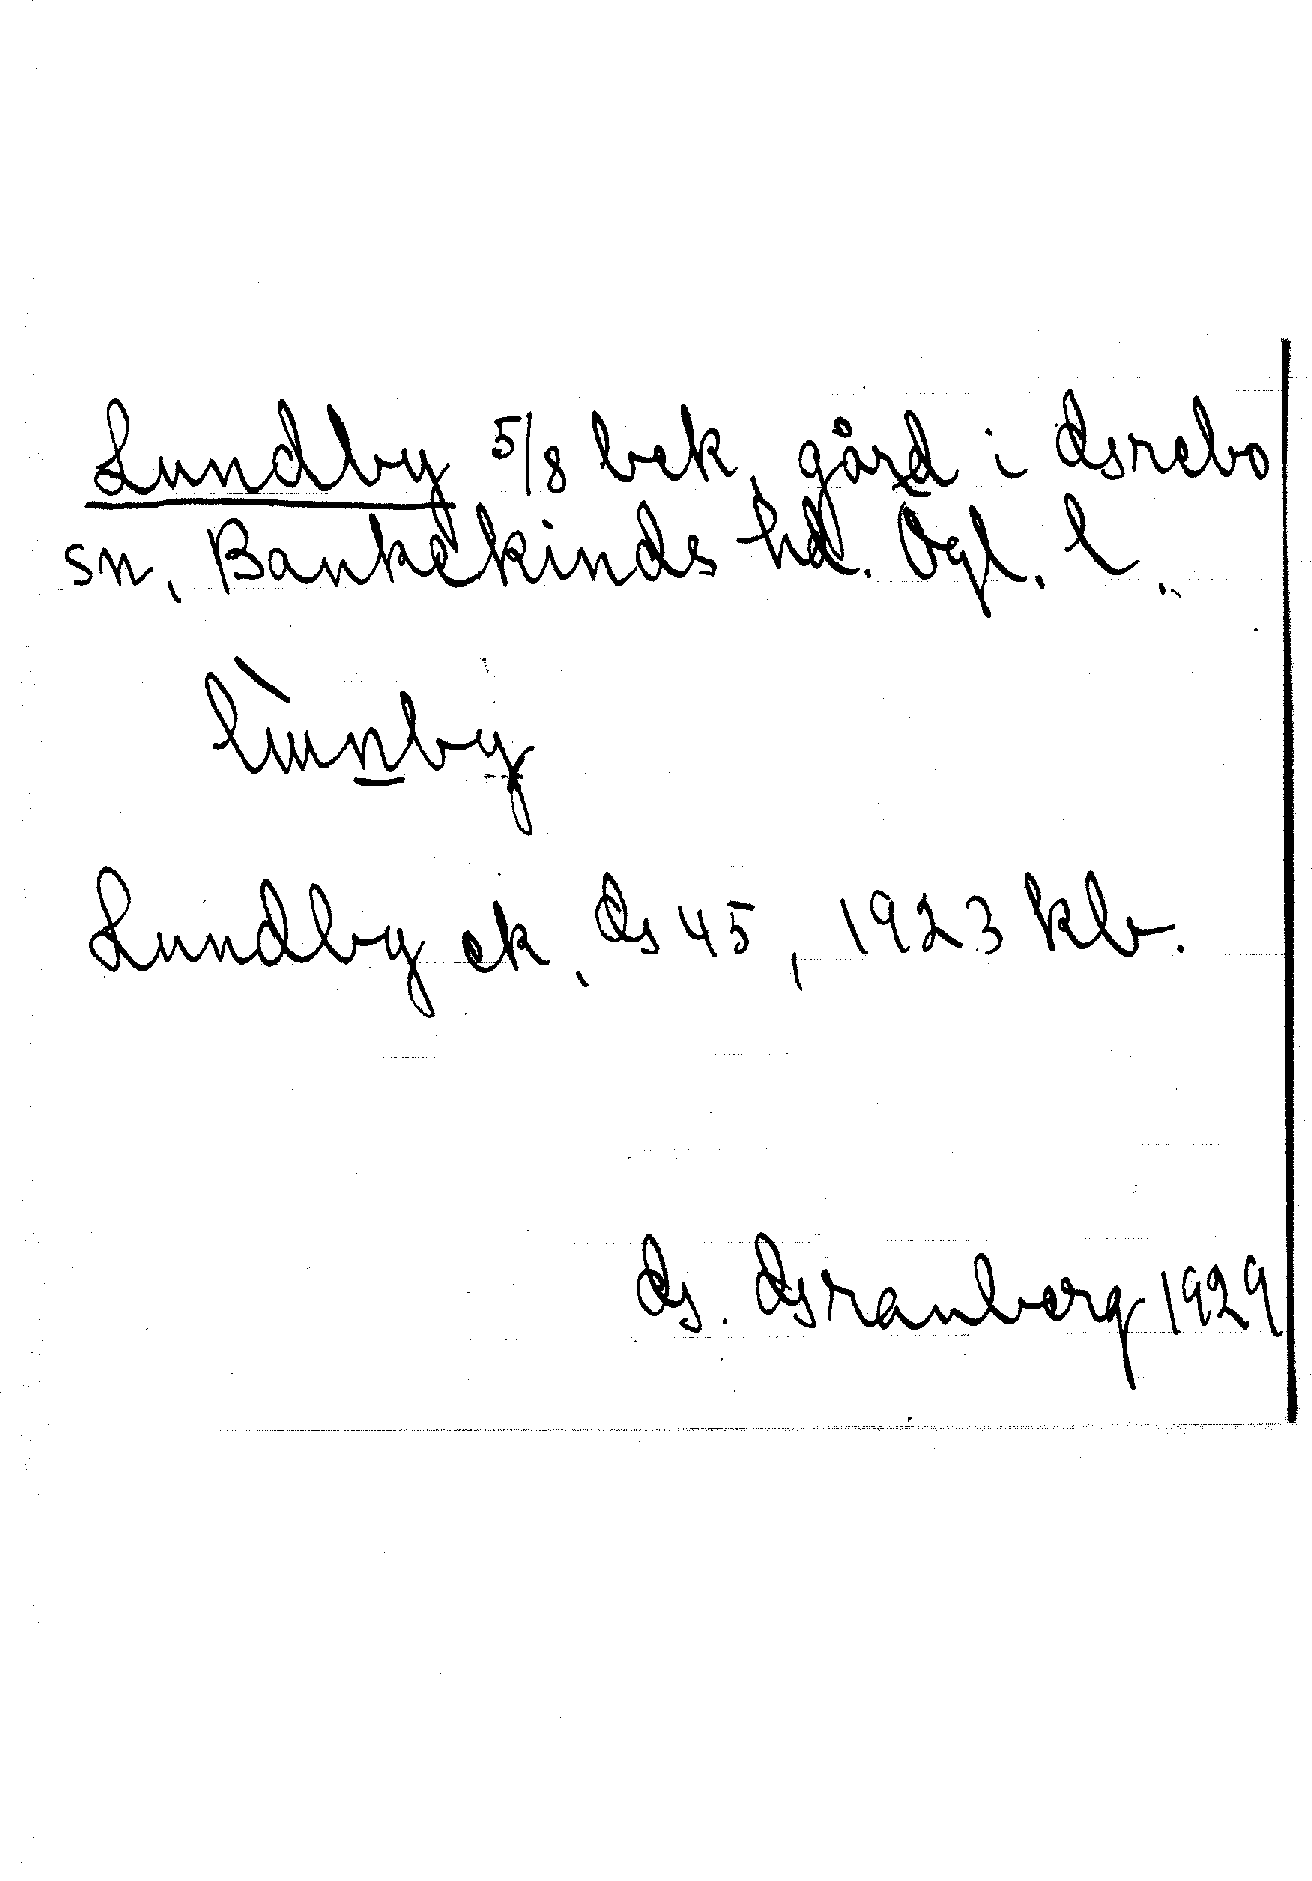 Lundby 5/8 bek, gård i Grebo
sn, Bankekinds hd. Ögl. l.
lùnby
Lundby ek, G 45, 1923 kb.
G. Granberg 1929